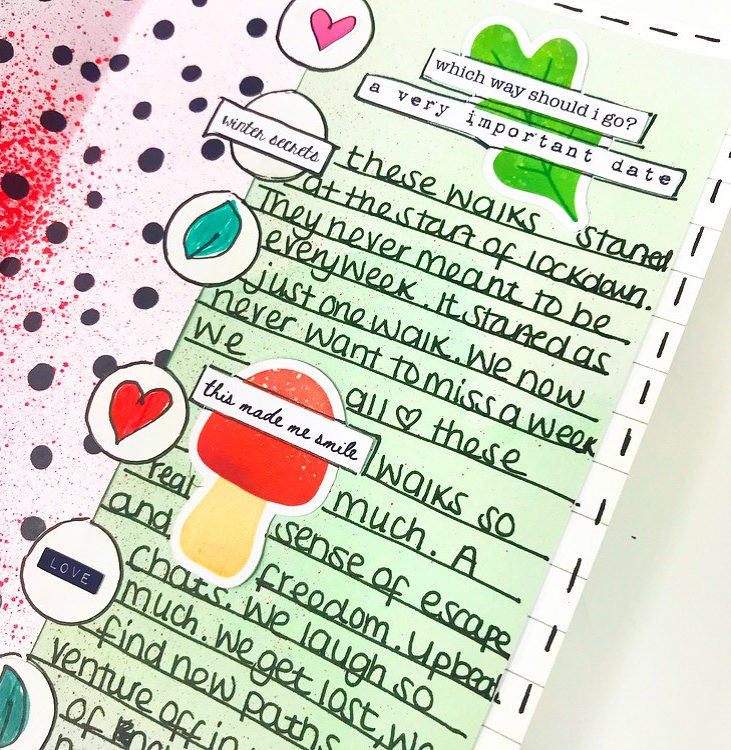 which way should i go?
a very important date
winter secrets
these walks started
at the start of lockdown.
They never meant to be
every week. It started as
just one walk. We now
never want to miss a week
We all ♡ these
this made me smile
walks so
much. A
real sense of escape
and freedom. Upbeat
chats. We laugh so
much. We get lost, we
find new paths
venture off in
of
LOVE